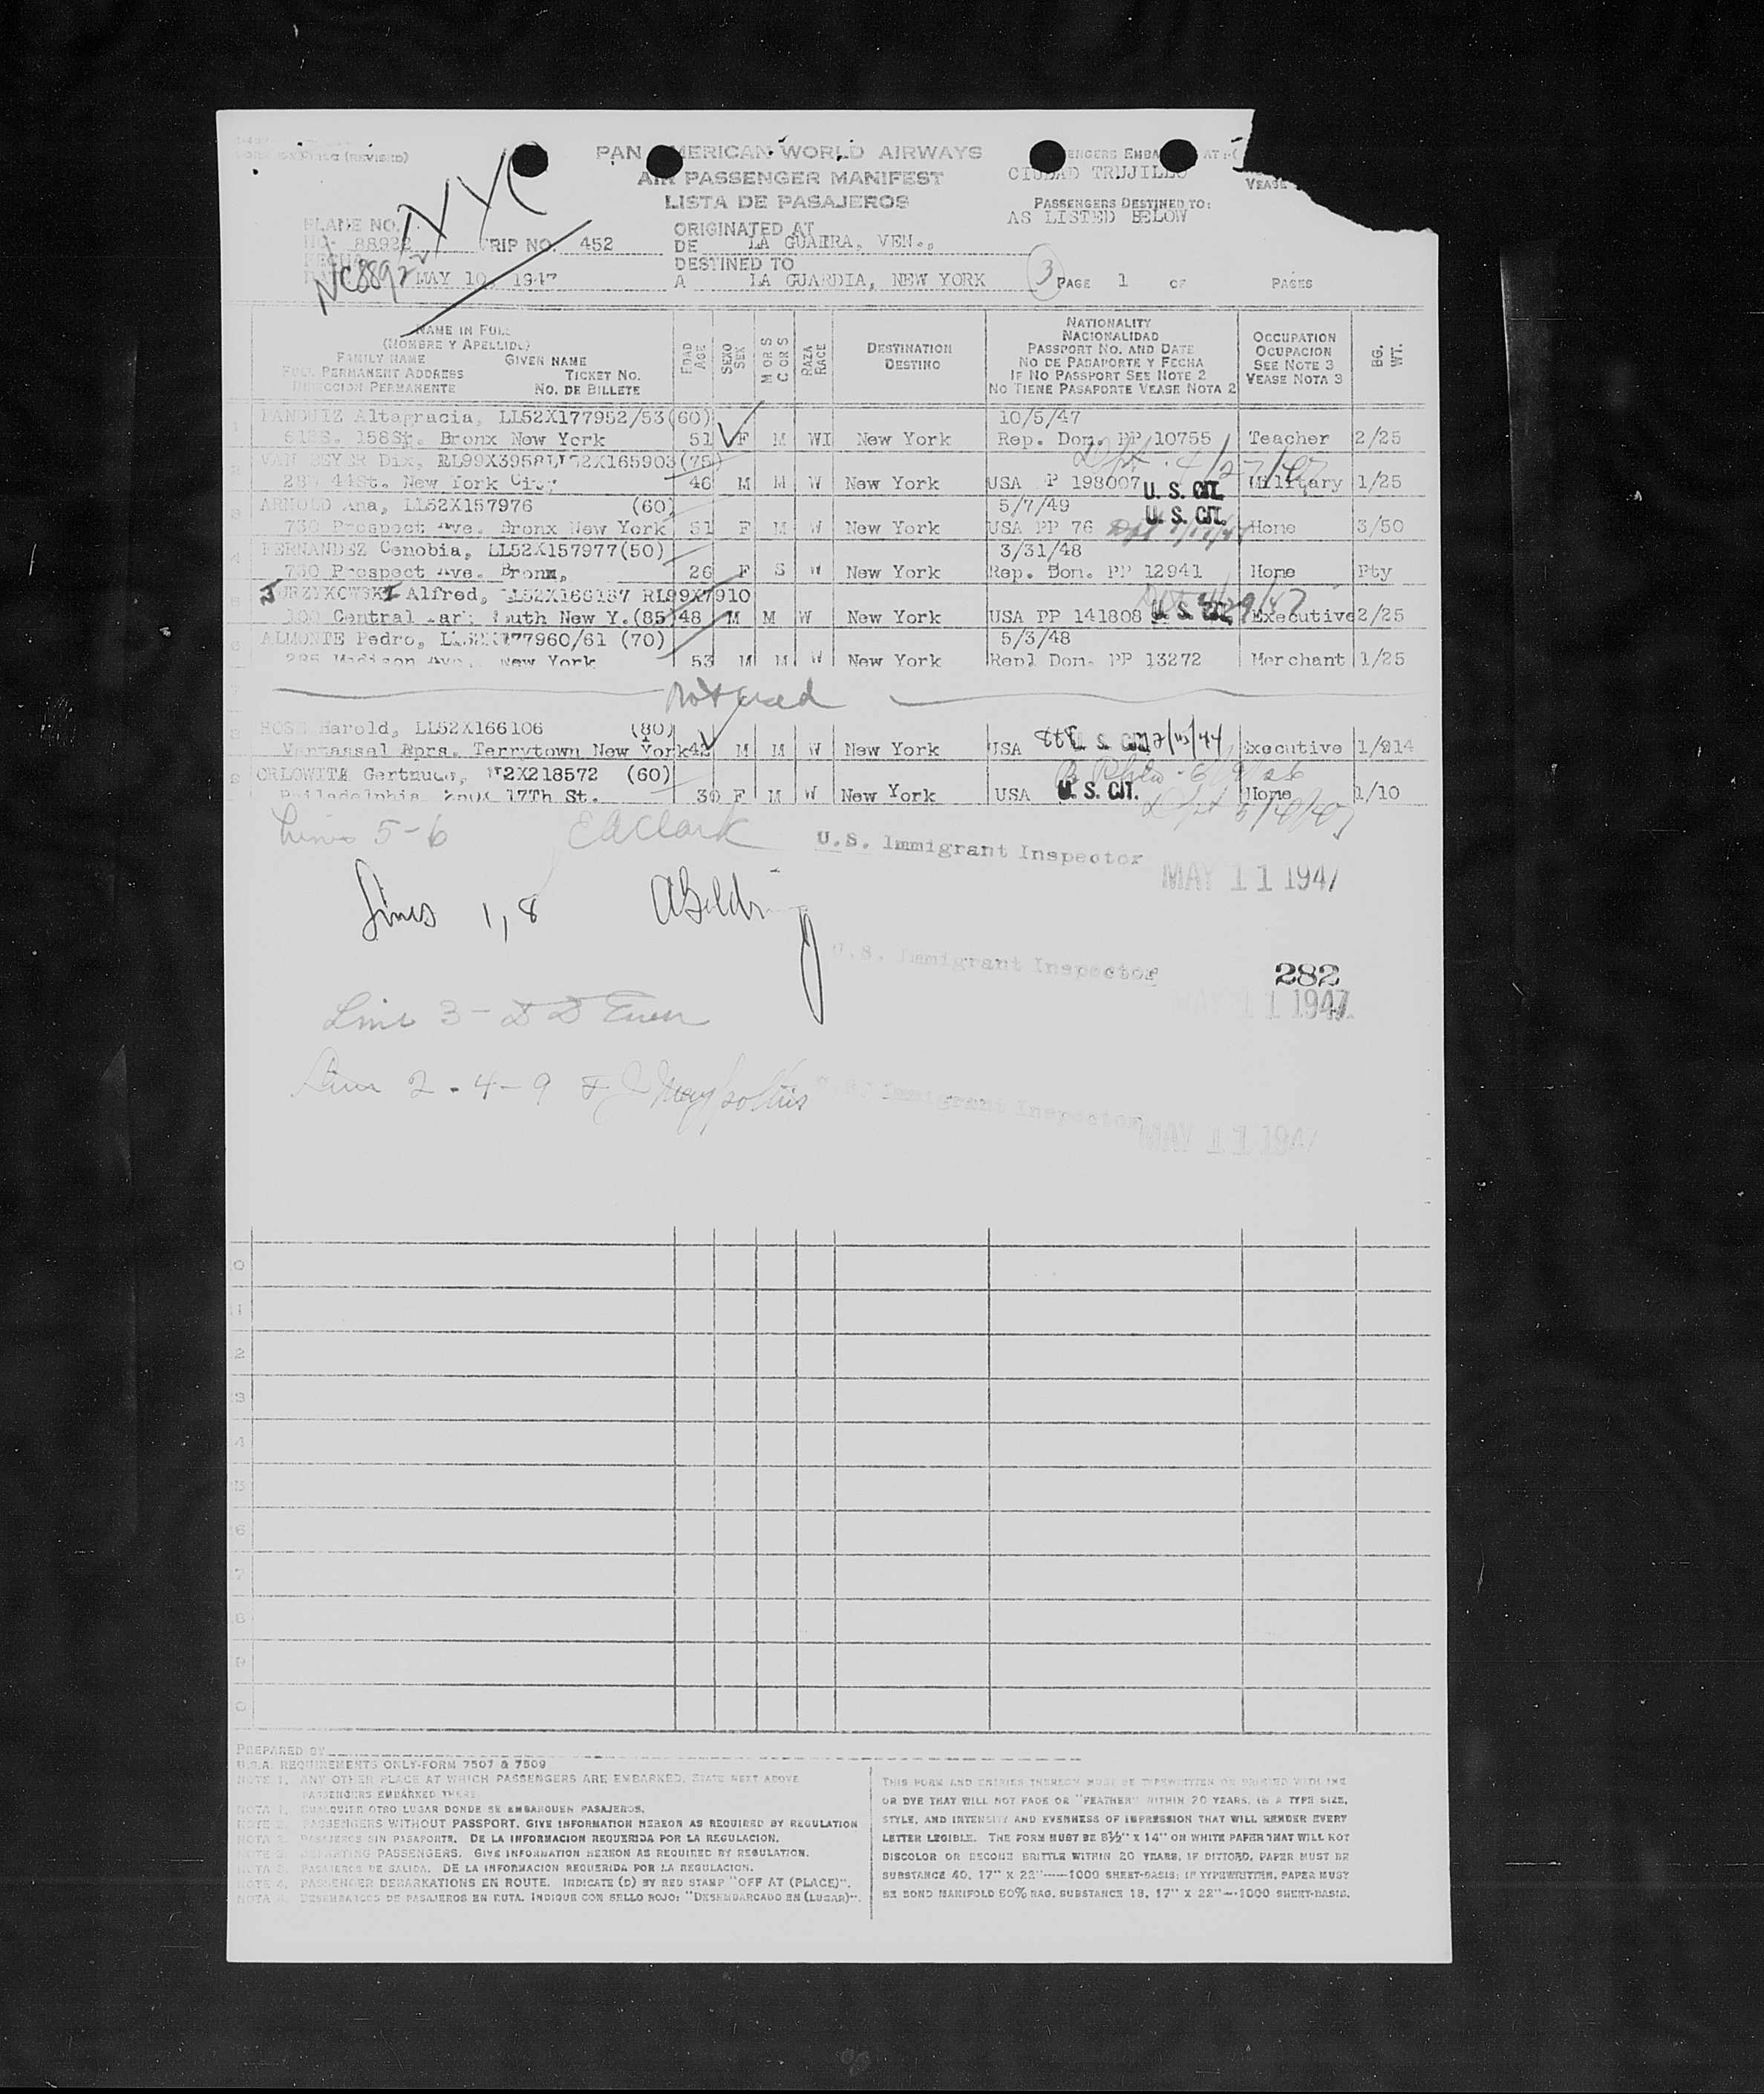 (REVISED)
PAN AMERICAN WORLD AIRWAYS
AIR PASSENGER MANIFEST
LISTA DE PASAJEROS
CIUDAD TRUJILLO
VEASE
PASSENGERS DESTINED TO:
AS LISTED BELOW
NYC
PLANE NO.
NO. 88922 TRIP NO. 452
NC88922
MAY 10, 1947
ORIGINATED AT
DE LA GUAIRA, VEN.,
DESTINED TO
A LA GUARDIA, NEW YORK
3 PAGE 1 OF PAGES
NAME IN FULL
(NOMBRE Y APELLIDO)
FAMILY NAME GIVEN NAME
FULL PERMANENT ADDRESS TICKET NO.
DIRECCION PERMANENTE NO. DE BILLETE
EDAD AGE
SEXO SEX
M OR S
C OR S
RAZA RACE
DESTINATION
DESTINO
NATIONALITY
NACIONALIDAD
PASSPORT NO. AND DATE
NO DE PASAPORTE Y FECHA
IF NO PASSPORT SEE NOTE 2
NO TIENE PASAPORTE VEASE NOTA 2
OCCUPATION
OCUPACION
SEE NOTE 3
VEASE NOTA 3
BG. WT.
Altagracia, LL52X177952/53(60) 10/5/47
158St. Bronx New York 51 F M WI New York Rep. Dom. PP 10755 Teacher 2/25
Dix, (75) Dpt. 4/27/47
44St. New York City 46 M M W New York USA P 198007 U. S. CIT. Military 1/25
ARNOLD Ana, LL52X157976 (60) 5/7/49 U. S. CIT.
730 Prospect Ave. Bronx New York 51 F M W New York USA PP 76 Home 3/50
FERNANDEZ Cenobia, LL52X157977(50) 3/31/48
730 Prospect Ave. Bronx, 26 F S W New York Rep. Dom. PP 12941 Home Pty
JURZYKOWSKI Alfred, RL99X7910
100 Central Park South New Y.(85) 48 M M W New York USA PP 141808 U. S. CIT. Executive 2/25
ALMONTE Pedro, (70) 5/3/48
Madison Ave. New York 53 M M W New York Repl Dom. PP 13272 Merchant 1/25
Not used
Harold, LL52X166106 (80)
Terrytown New York 42 M M W New York USA U. S. CIT. Executive
Gertrude, (60)
Philadelphia 17Th St. F M W New York USA U. S. CIT. Home 1/10
Lines 5-6 EAClark U.S. Immigrant Inspector
MAY 11 1947
Lines 1, 8 U.S. Immigrant Inspector
282
MAY 11 1947
Line 3 -
Line 2 - 4 - 9 U.S. Immigrant Inspector
MAY 11 1947
0
11
2
3
4
5
6
7
8
9
0
PREPARED BY
U.S.A. REQUIREMENTS ONLY-FORM 7507 & 7509
NOTE 1. ANY OTHER PLACE AT WHICH PASSENGERS ARE EMBARKED. STATE NEXT ABOVE
PASSENGERS EMBARKED THERE
NOTA 1. CUALQUIER OTRO LUGAR DONDE SE EMBARQUEN PASAJEROS.
NOTE 2. PASSENGERS WITHOUT PASSPORT. GIVE INFORMATION HEREON AS REQUIRED BY REGULATION
NOTA 2. PASAJEROS SIN PASAPORTE. DE LA INFORMACION REQUERIDA POR LA REGULACION.
NOTE 3. DEPARTING PASSENGERS. GIVE INFORMATION HEREON AS REQUIRED BY REGULATION.
NOTA 3. PASAJEROS DE SALIDA. DE LA INFORMACION REQUERIDA POR LA REGULACION.
NOTE 4. PASSENGER DEBARKATIONS EN ROUTE. INDICATE (D) BY RED STAMP "OFF AT (PLACE)".
NOTA 4. DESEMBARCOS DE PASAJEROS EN RUTA. INDIQUE CON SELLO ROJO: "DESEMBARCADO EN (LUGAR)".
THIS FORM AND ENTRIES THEREON MUST BE TYPEWRITTEN OR PRINTED WITH INK
OR DYE THAT WILL NOT FADE OR "FEATHER" WITHIN 20 YEARS, IN A TYPE SIZE,
STYLE, AND INTENSITY AND EVENNESS OF IMPRESSION THAT WILL RENDER EVERY
LETTER LEGIBLE. THE FORM MUST BE 8½" X 14" ON WHITE PAPER THAT WILL NOT
DISCOLOR OR BECOME BRITTLE WITHIN 20 YEARS. IF DITTOED, PAPER MUST BE
SUBSTANCE 40, 17" X 22"-----1000 SHEET-BASIS: IF TYPEWRITTEN, PAPER MUST
BE BOND MANIFOLD 50% RAG. SUBSTANCE 18, 17" X 22"--1000 SHEET-BASIS.